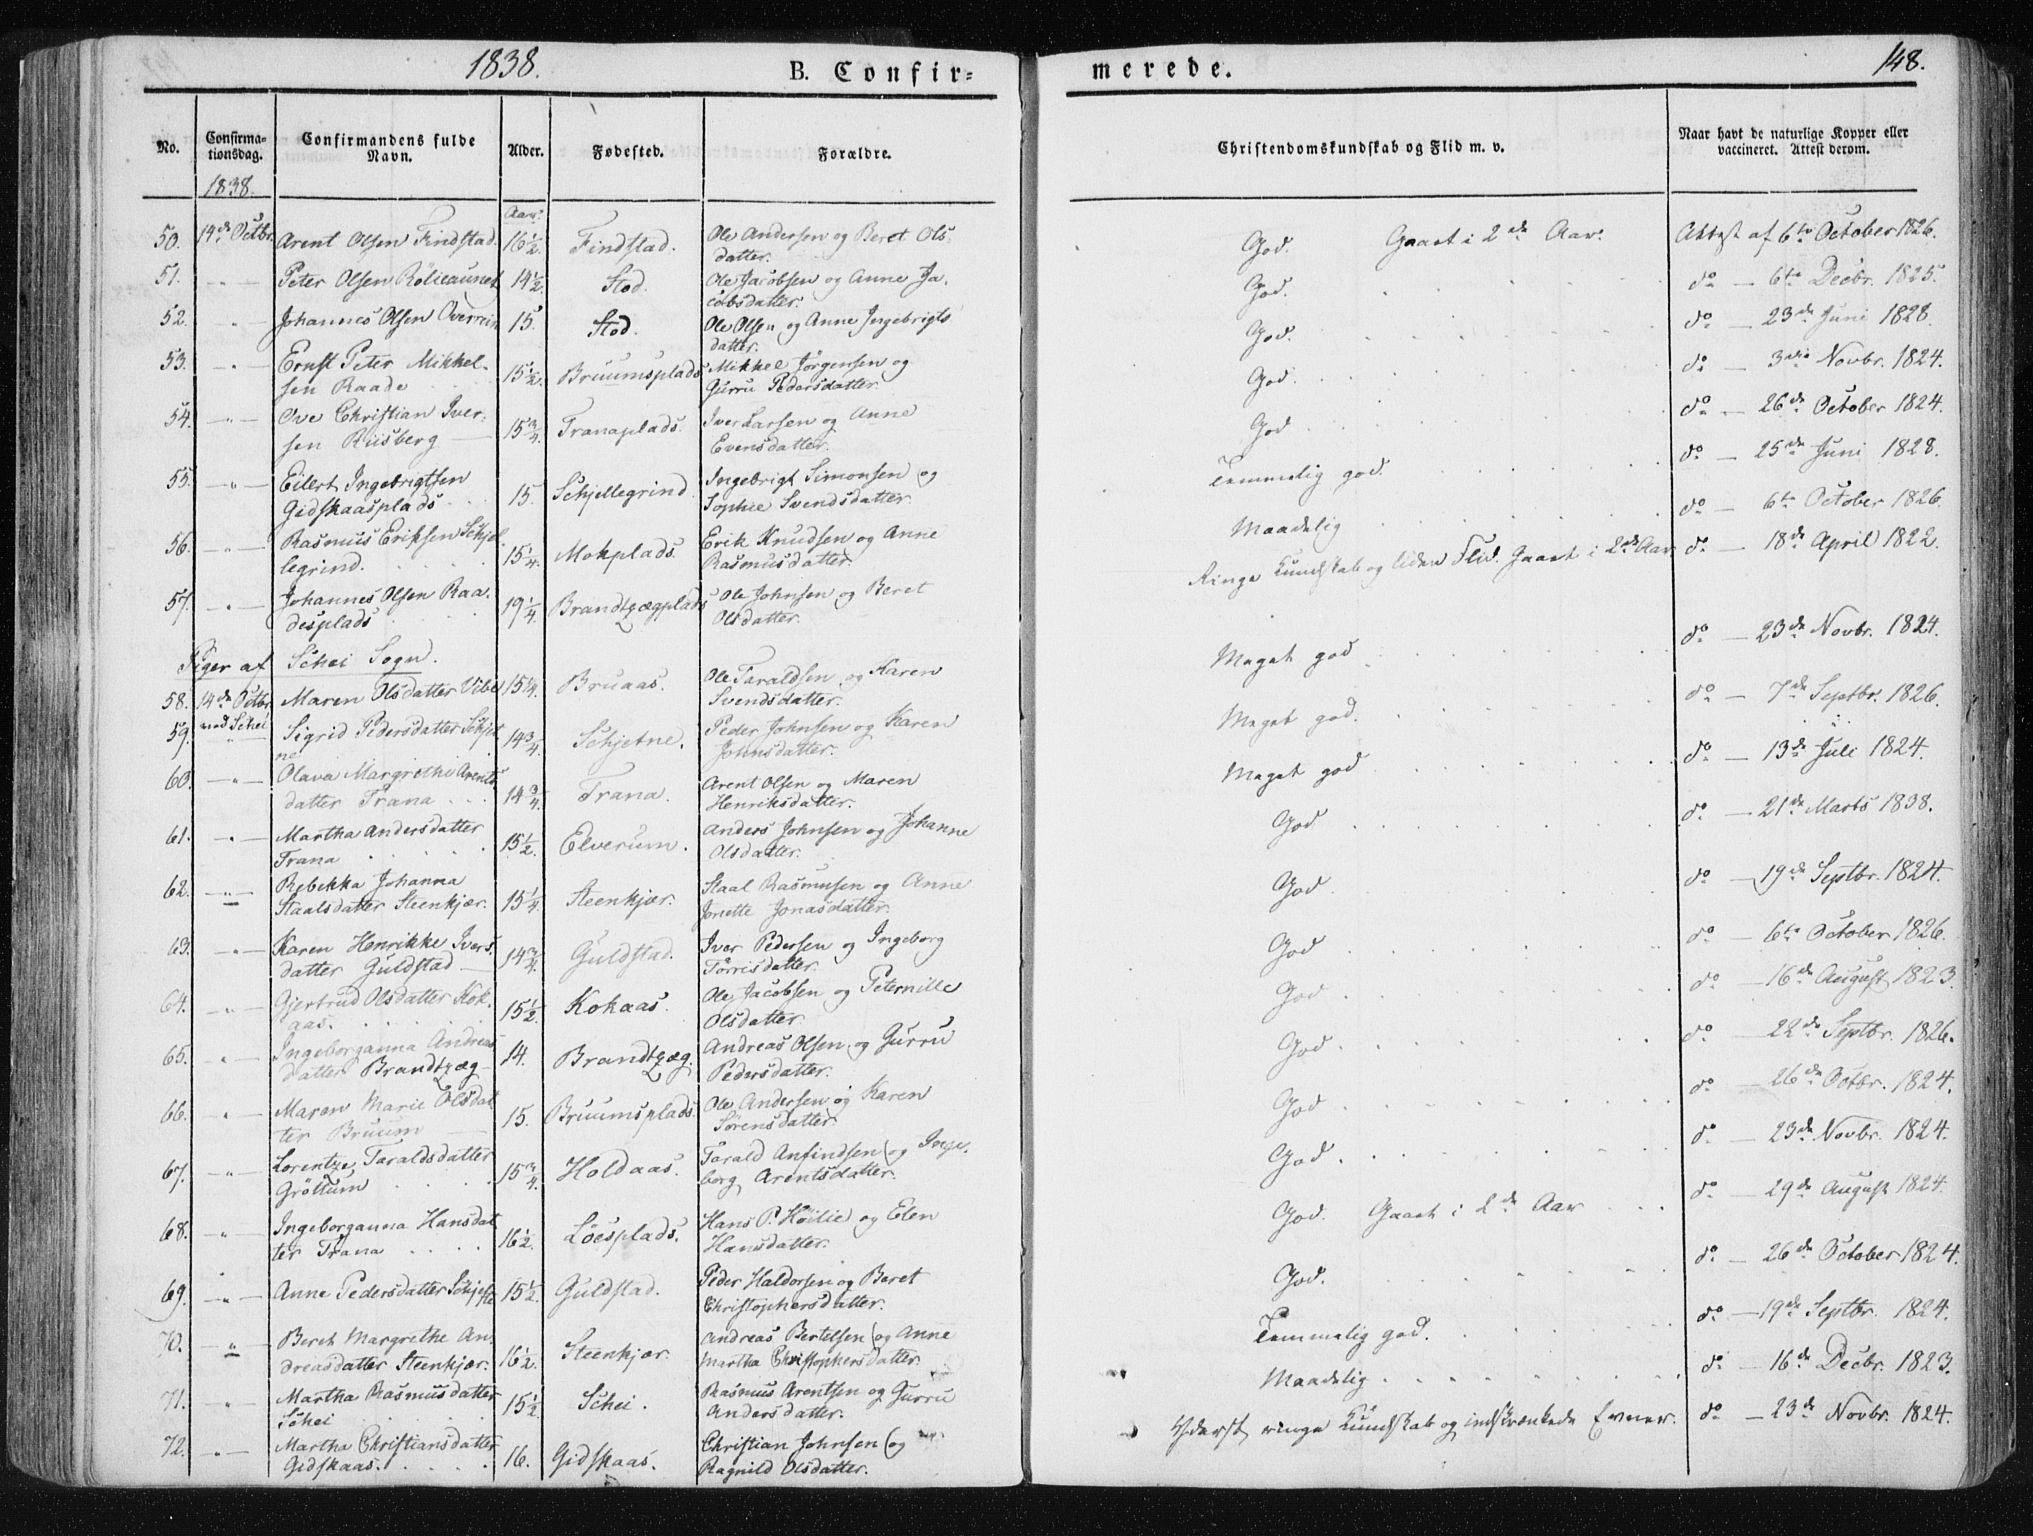 1838. B. Confir= merede. 148.
No. Confirma-tionsdag. Confirmandens fulde Navn. Alder. Fødested. Forældre. Christendomskundskab og Flid m. v. Naar havt de naturlige Kopper eller vaccineret. Attest derom.
1838. Aar.
50. 14de Octbr. Arent Olsen Findstad. 16 1/2. Findstad. Ole Andersen og Beret Ols datter. God. Gaaet i 2de Aar. Attest af 6te October 1826.
51. -"- Peter Olsen Rölieaunet 14 1/2. Stod. Ole Jacobsen og Anne Ja. cobsdatter. God. do — 6te Decbr. 1825.
52. -"- Johannes Olsen Overrein 15. Stod. Ole Olsen og Anne Ingebrigts datter. God. do — 23de Juni 1828.
53. -"- Ernst Peter Mikkel- sen Raade 15 1/2. Bruumsplads Mikkel Jörgensen og Gurru Pedersdatter God. do — 3die Novbr. 1824.
54. -"- Ove Christian Iver- sen Riisberg 15 3/4. Tranaplads. Iver Larsen og Anne Evensdatter. God do — 26de October 1824.
55. -"- Eilert Ingebrigtsen Gidskaasplads 15. Schjellegrind. Ingebrigt Simonsen og Sophie Svendsdatter. Temmelig god. do — 25de Juni 1828.
56. -"- Rasmus Eriksen Schjel legrind. 15 1/4. Mokplads. Erik Knudsen og Anne Rasmusdatter. Maadelig do — 6te October 1826.
57. -"- Johannes Olsen Raa. desplads 19 1/4. Brandtzægplads Ole Johnsen og Beret Olsdatter. Ringe Kundskab og liden Flid. Gaaet i 2de Aar do — 18de April 1822.
Piger af Schei Sogn.
58. 14de Octbr. ved Schei Maren Olsdatter Vibe 15 1/4. Bruaas. Ole Taraldsen og Karen Svendsdatter. Meget god do — 23de Novbr. 1824.
59. -"- Sigrid Pedersdatter Schjet ne 14 3/4. Schjetne. Peder Johnsen og Karen Johnsdatter. Meget god. do — 7de Septbr. 1826.
60. -"- Olava Margrethe Arents datter Trana 14 3/4. Trana. Arent Olsen og Maren Henriksdatter. Meget god do — 13de Juli 1824.
61. -"- Martha Andersdatter Trana 15 1/2. Elverum. Anders Johnsen og Johanne Olsdatter. God do — 21de Marts 1838.
62. -"- Rebekka Johanna Staalsdatter Steenkjær. 15 1/4. Steenkjær. Staal Rasmusen og Anne Jonette Jonasdatter. God do — 19de Septbr. 1824.
63. -"- Karen Henrikke Ivers. datter Guldstad 14 3/4. Guldstad. Iver Pedersen og Ingeborg Törrisdatter. God do — 6te October 1826.
64. -"- Gjertrud Olsdatter Kok- aas. 15 1/2. Kokaas. Ole Jacobsen og Peternille Olsdatter. God do — 16de August 1823.
65. -"- Ingeborganna Andreas datter Brandtzæg 14. Brandtzæg. Andreas Olsen og Gurru Pedersdatter. God do — 22de Septbr. 1826.
66. -"- Maren Marie Olsdat ter Bruum 15. Bruumsplads. Ole Andersen og Karen Sörensdatter. God do — 26de Octbr. 1824.
67. -"- Lorentze Taraldsdatter Gröttum 15 3/4. Holdaas. Tarald Anfindsen og Inge. borg Arentsdatter. God do — 23de Novbr. 1824.
68. -"- Ingeborganna Hansdat ter Trana 16 1/2. Löesplads. Hans P. Höilie og Elen Hansdatter. God. Gaaet i 2de Aar do — 29de August 1824.
69. -"- Anne Pedersdatter Schjefte 15 1/2. Guldstad. Peder Haldorsen og Beret Christophersdatter. God. do — 26de October 1824.
70. -"- Beret Margrethe An. dreasdatter Steenkjær. 16 1/2. Steenkjær. Andreas Bertelsen og Anne Martha Christophersdatter. Temmelig god. do — 19de Septbr. 1824.
71. -"- Martha Rasmusdatter Schei 15 1/2. Schei. Rasmus Arentsen og Gurru Andersdatter. Maadelig do — 16de Decbr. 1823.
72. -"- Martha Christiansdatter Gidskaas. 16. Gidskaas. Christian Johnsen og Ragnild Olsdatter. Yderst ringe Kundskab og indskrænkede Evner. do — 23de Novbr. 1824.